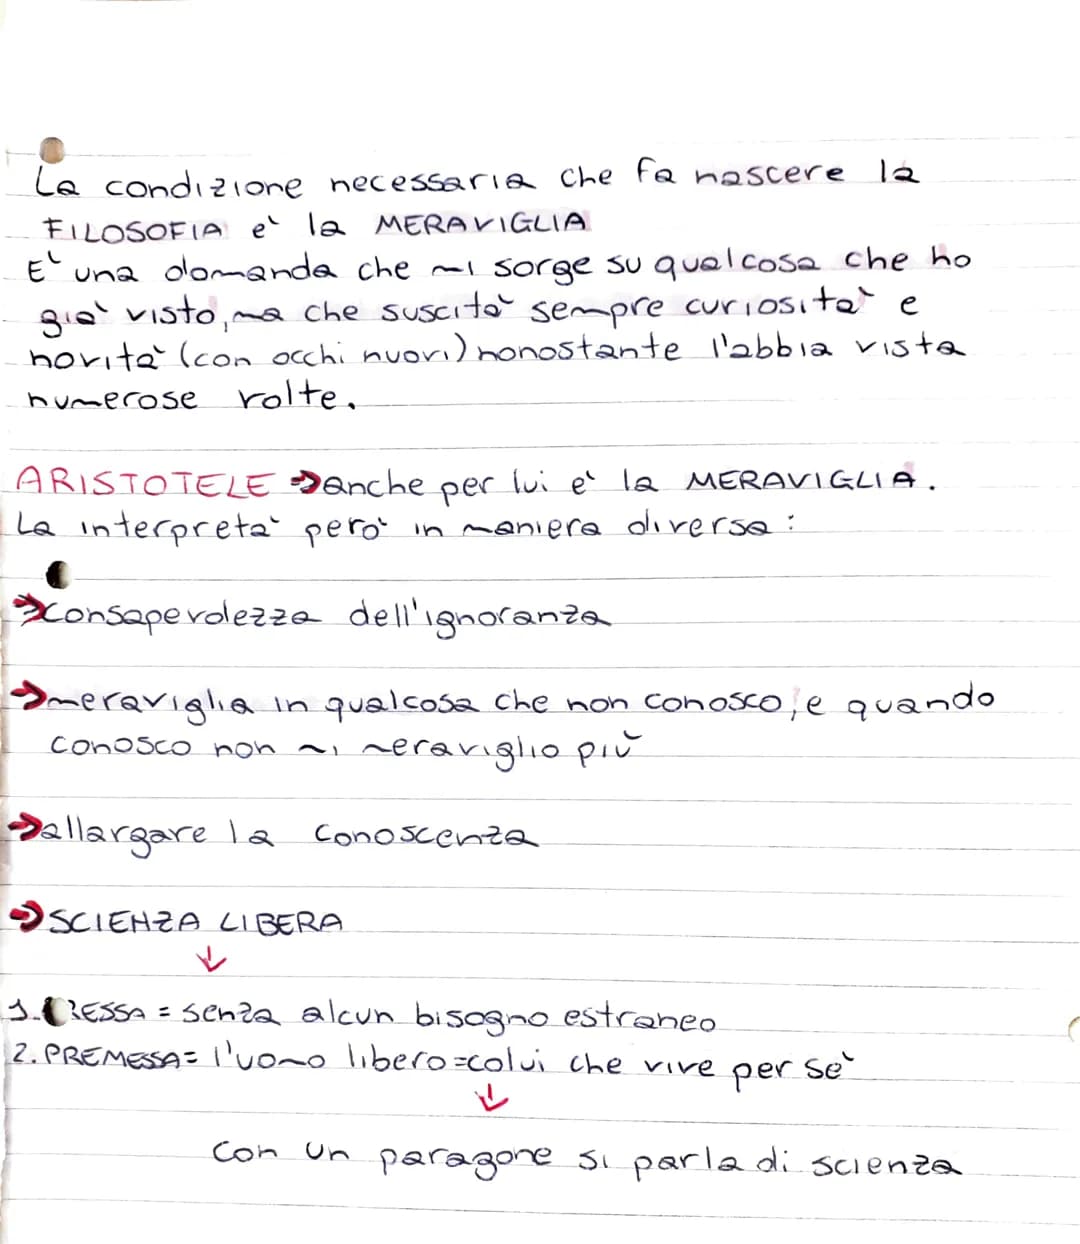 La condizione necessaria che fa nascere la
FILOSOFIA e` la MERAVIGLIA
E` una domanda che mi sorge su qualcosa che ho
già visto, ma che suscità sempre curiosità e
novità (con occhi nuovi) nonostante l'abbia vista
numerose volte.
ARISTOTELE → anche per lui e` la MERAVIGLIA.
La interpretà però in maniera diversa:
→ consapevolezza dell'ignoranza
→ meraviglia in qualcosa che non conosco, e quando
conosco non mi meraviglio più
→ allargare la conoscenza
→ SCIENZA LIBERA
↓
1. RESSA = senza alcun bisogno estraneo
2. PREMESSA = l'uomo libero = colui che vive per sè
↓
con un paragone si parla di scienza